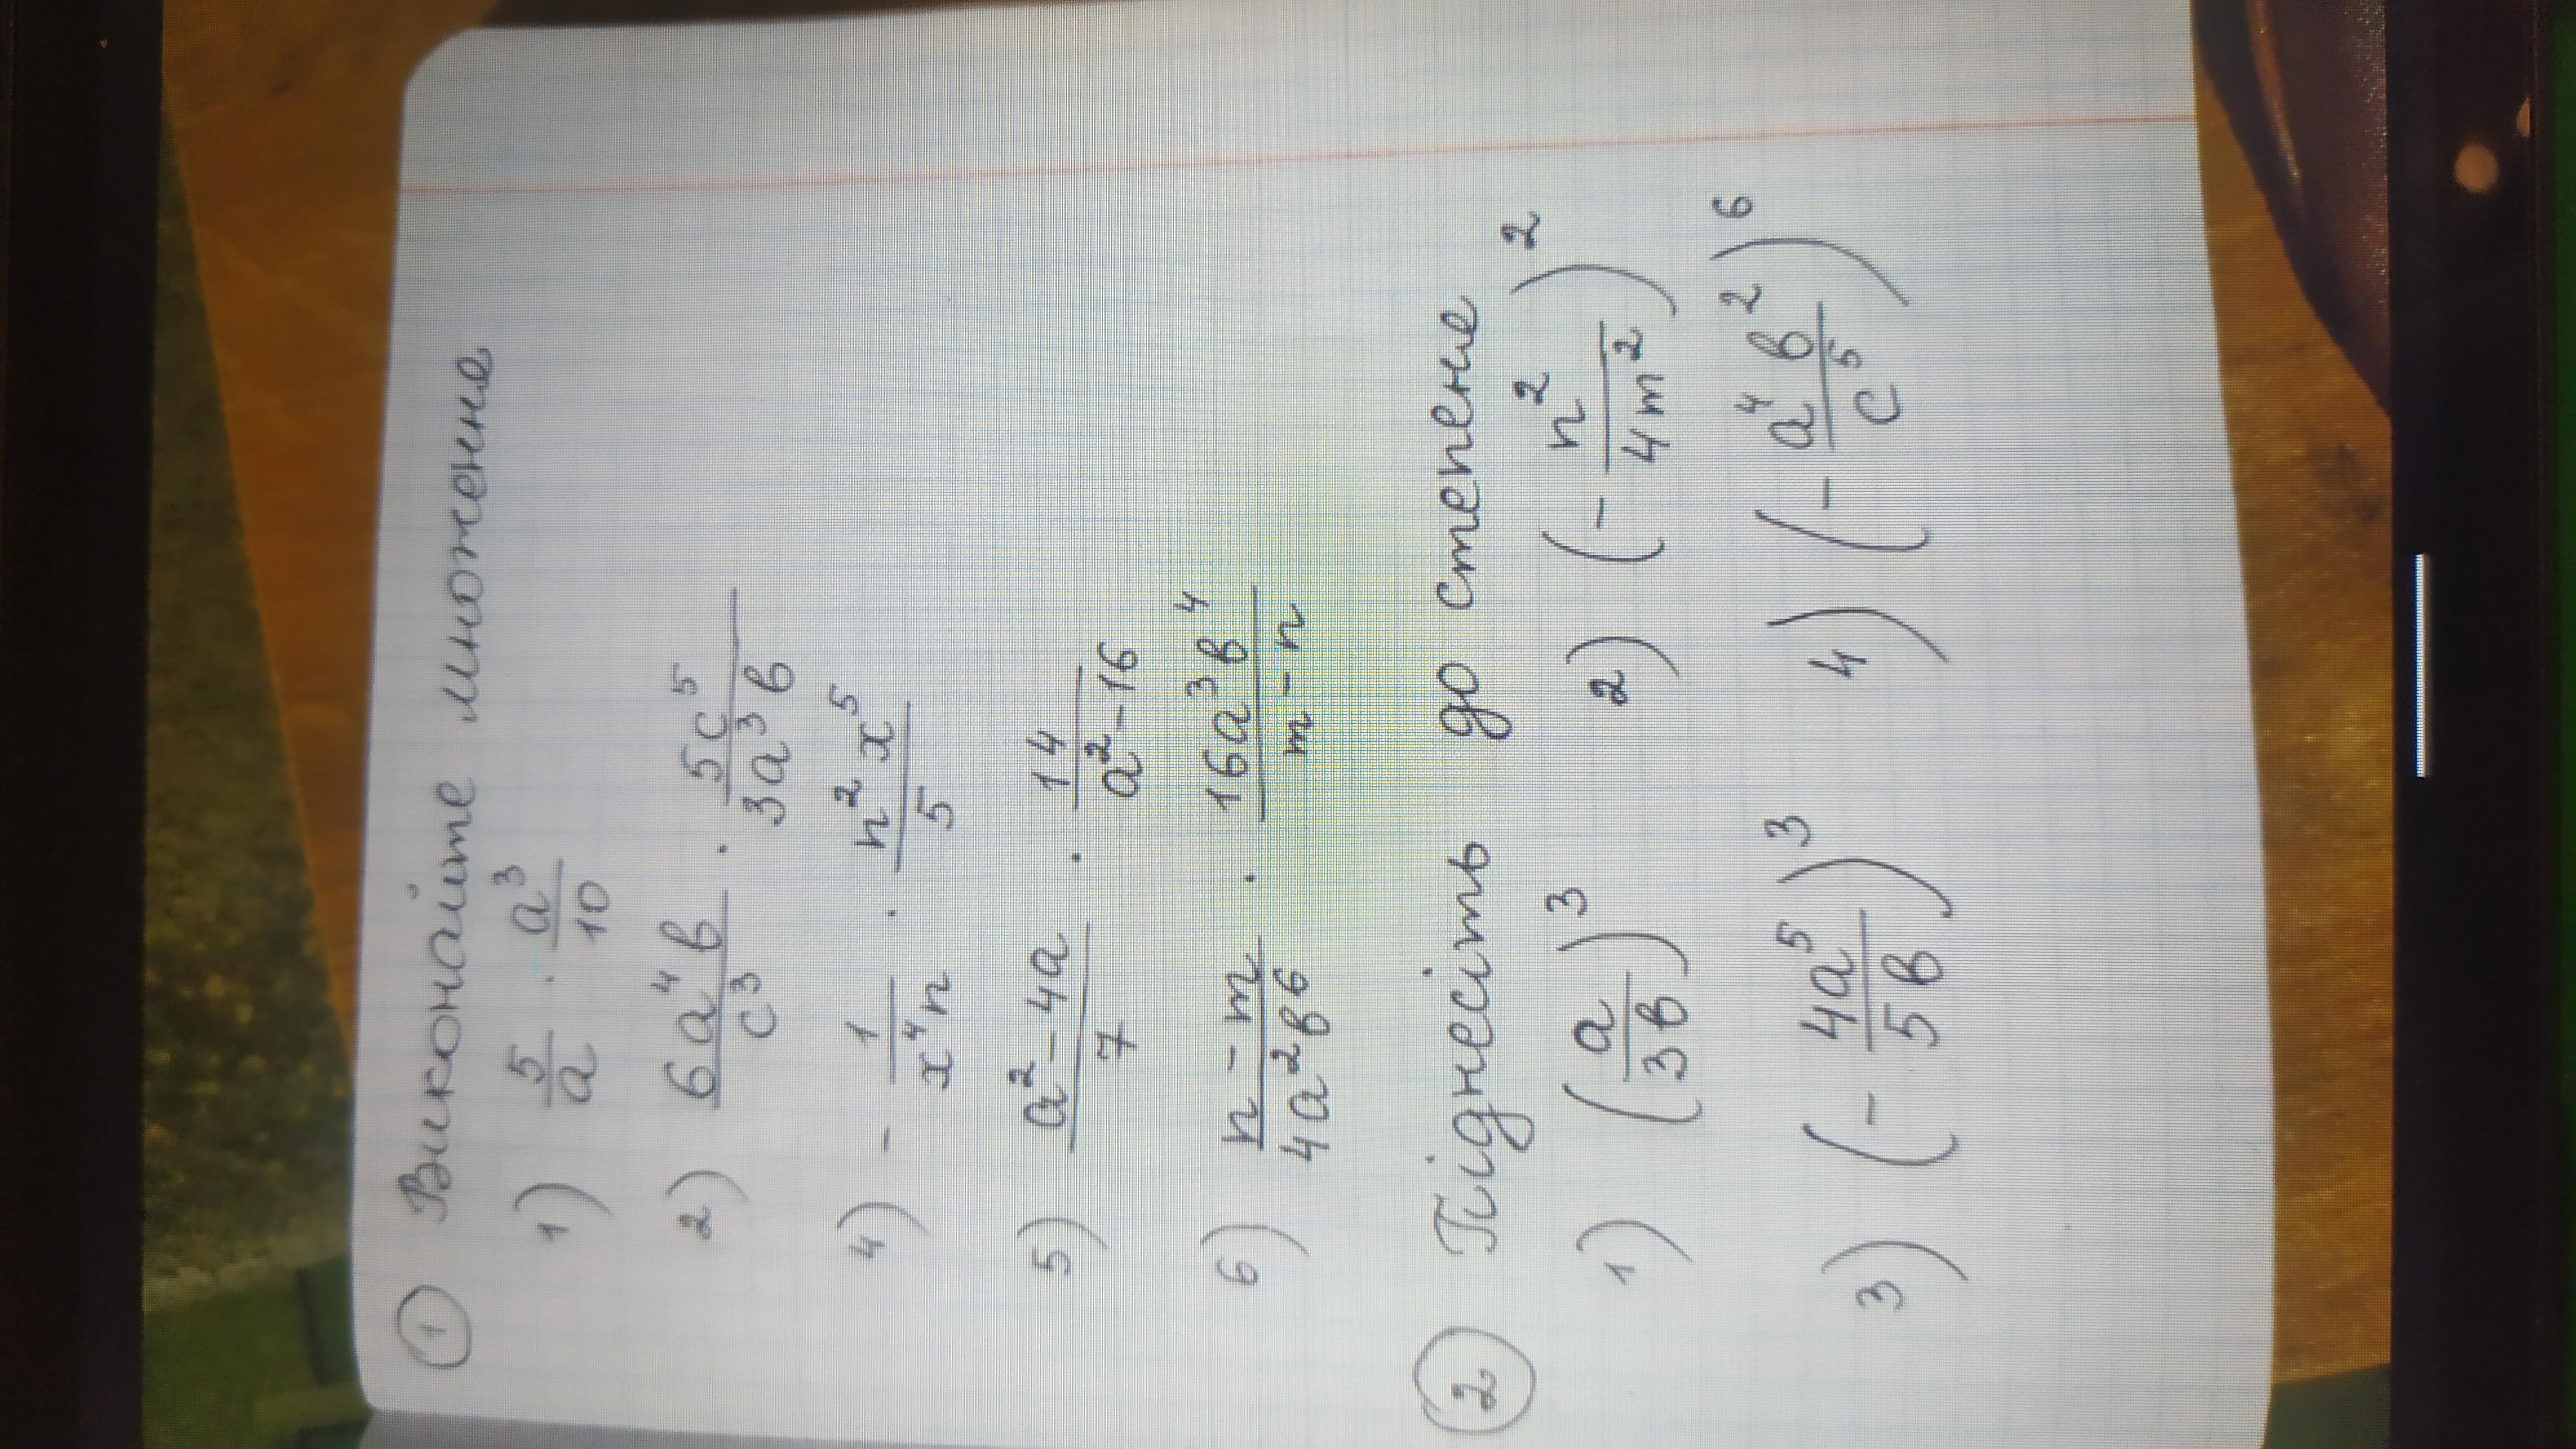 ① Виконайте множення
1) 5/a · a³/10
2) 6a⁴в/c³ · 5c⁵/3a³в
4) - 1/x⁴n · n²x⁵/5
5) a²-4a/7 · 14/a²-16
6) n-m/4a²в6 · 16a³в⁴/m-n
② Піднесіть до степене
1) (a/3в)³ 2) (- n²/4m²)²
3) (- 4a⁵/5в)³ 4) (- a⁴в²/c⁵)⁶